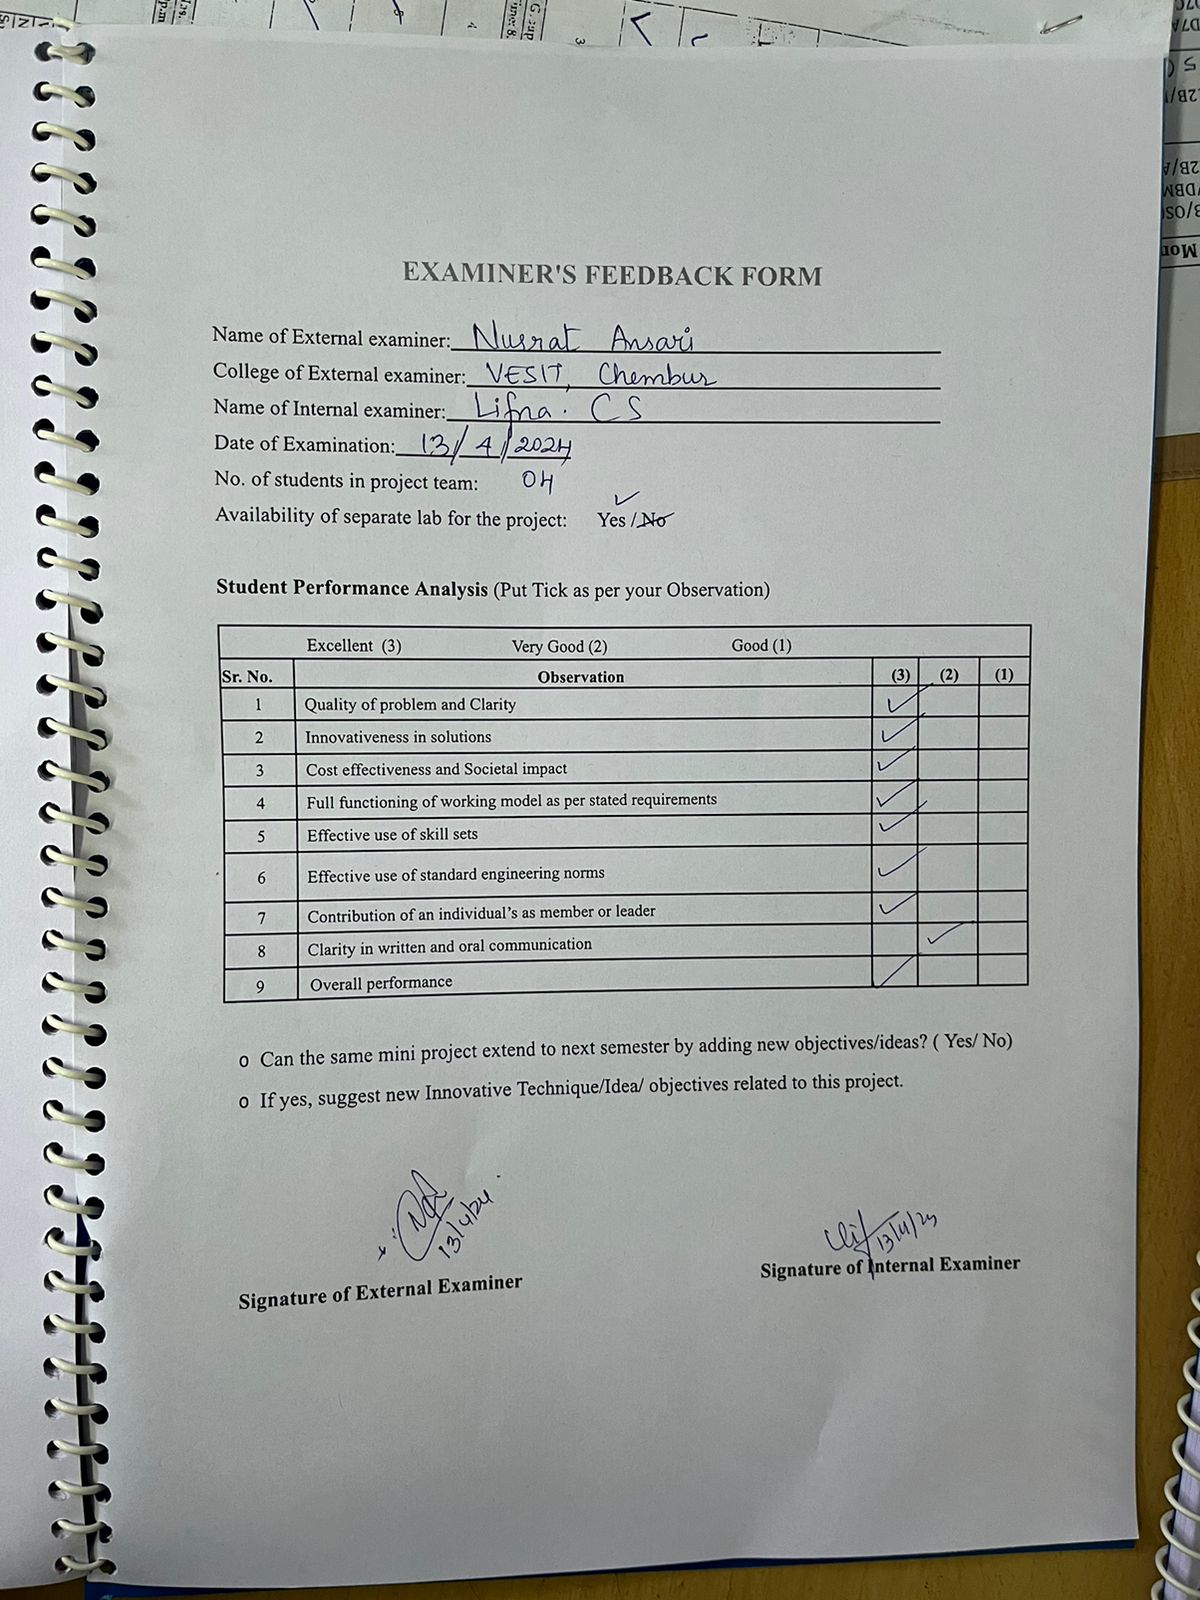 EXAMINER'S FEEDBACK FORM
Name of External examiner: Nusrat Ansari
College of External examiner: VESIT, Chembur
Name of Internal examiner: Lifna. CS
Date of Examination: 13/4/2024
No. of students in project team: 04
Availability of separate lab for the project: Yes / No
Student Performance Analysis (Put Tick as per your Observation)
Excellent (3) Very Good (2) Good (1)
Sr. No. Observation (3) (2) (1)
1 Quality of problem and Clarity ✓
2 Innovativeness in solutions ✓
3 Cost effectiveness and Societal impact ✓
4 Full functioning of working model as per stated requirements ✓
5 Effective use of skill sets ✓
6 Effective use of standard engineering norms ✓
7 Contribution of an individual’s as member or leader ✓
8 Clarity in written and oral communication ✓
9 Overall performance ✓
o Can the same mini project extend to next semester by adding new objectives/ideas? ( Yes/ No)
o If yes, suggest new Innovative Technique/Idea/ objectives related to this project.
13/4/24
Signature of External Examiner
Signature of Internal Examiner